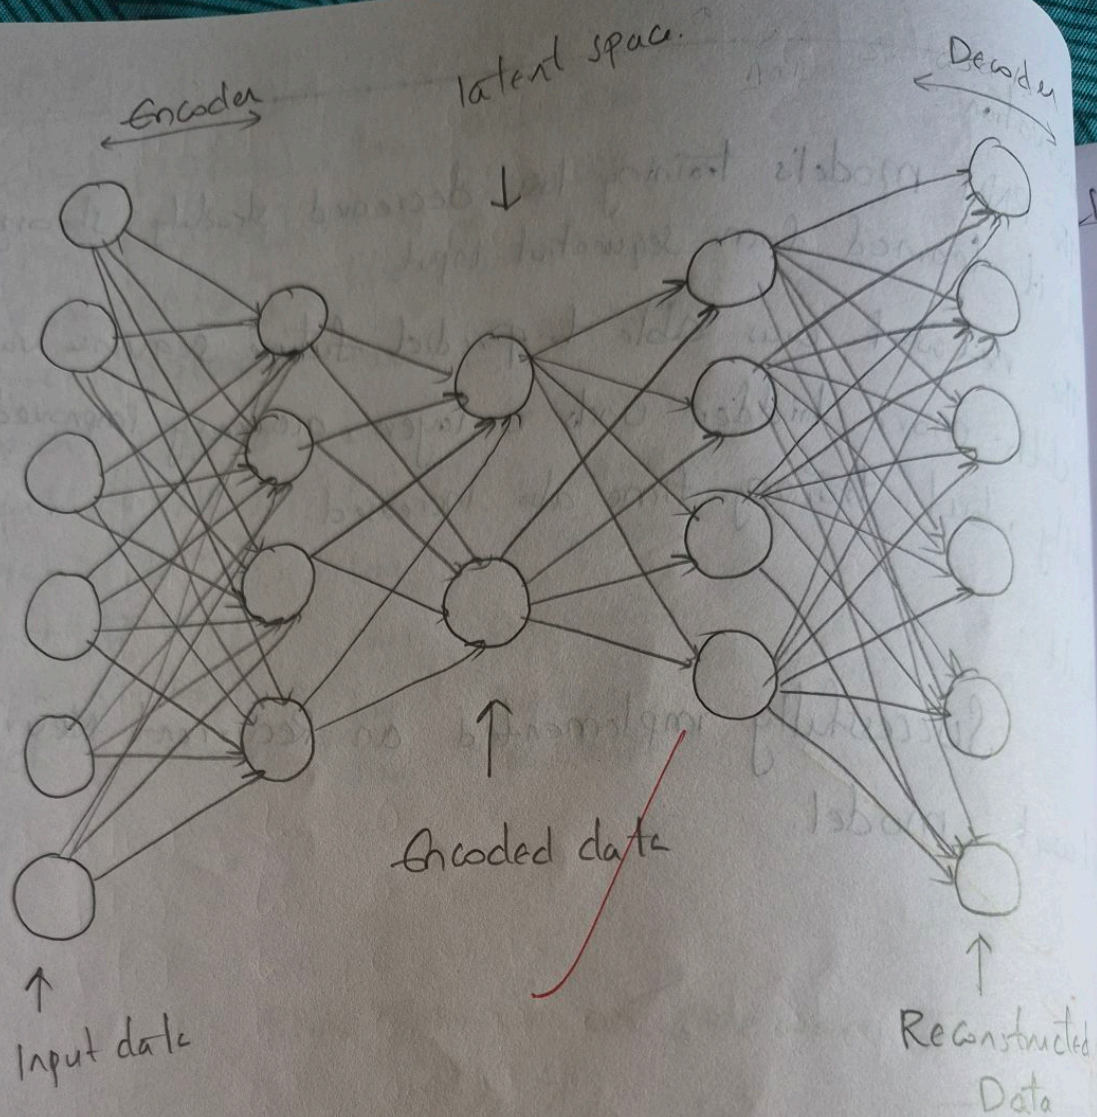 Encoder
latent space.
Decoder
Encoded data
Input data
Reconstructed
Data